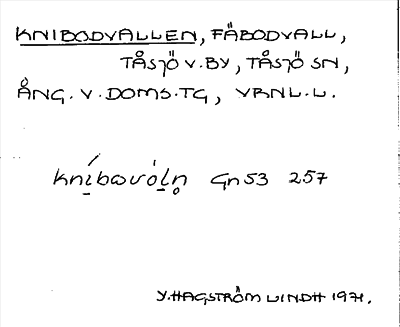 KNIBODVALLEN, FÄBODVALL,
TÅSJÖ V. BY, TÅSJÖ SN,
ÅNG. V. DOMS. TG, VRNL. L.
kníbɷvòln̥ Gn53 257
Y. HAGSTRÖM LINDH 1971.